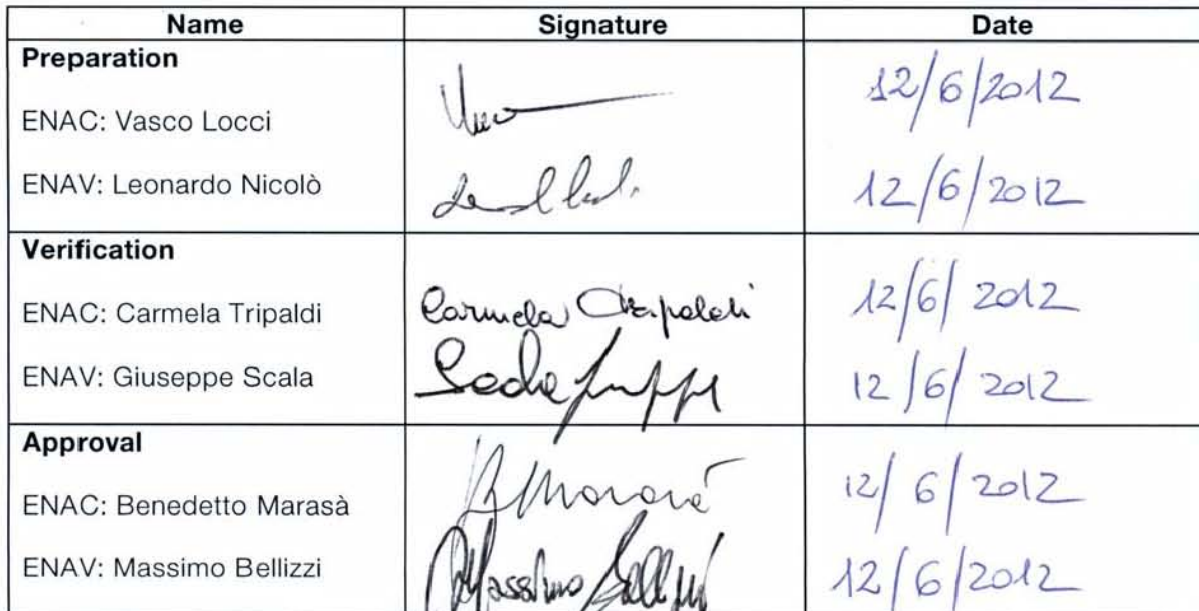 Name Signature Date
Preparation
12/6/2012
ENAC: Vasco Locci
ENAV: Leonardo Nicolò
12/6/2012
Verification
ENAC: Carmela Tripaldi Carmela Tripaldi 12/6/2012
ENAV: Giuseppe Scala Scala Giuseppe 12/6/2012
Approval
ENAC: Benedetto Marasà B Marasà 12/6/2012
ENAV: Massimo Bellizzi Massimo Bellizzi 12/6/2012